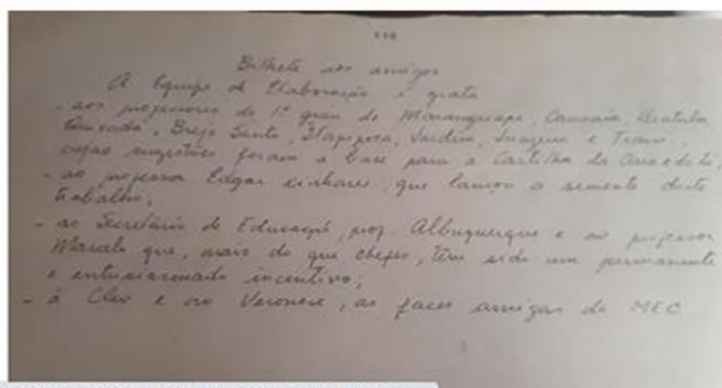 110
Bilhete aos amigos
A Equipe de Elaboração é grata
- aos professores do 1º grau de Maranguape, Caucaia, Aratuba,
Brejo Santo, Itapipoca, Jardim, e
cujas sugestões foram a base para a Cartilha da
- ao professor Edgar Linhares, que lançou a semente deste
trabalho;
- ao Secretário de Educação, prof. Albuquerque e ao professor
Marcelo que, mais do que chefes, têm sido um permanente
e entusiasmado incentivo;
- à Cléo e ao Veronese, as faces amigas do MEC